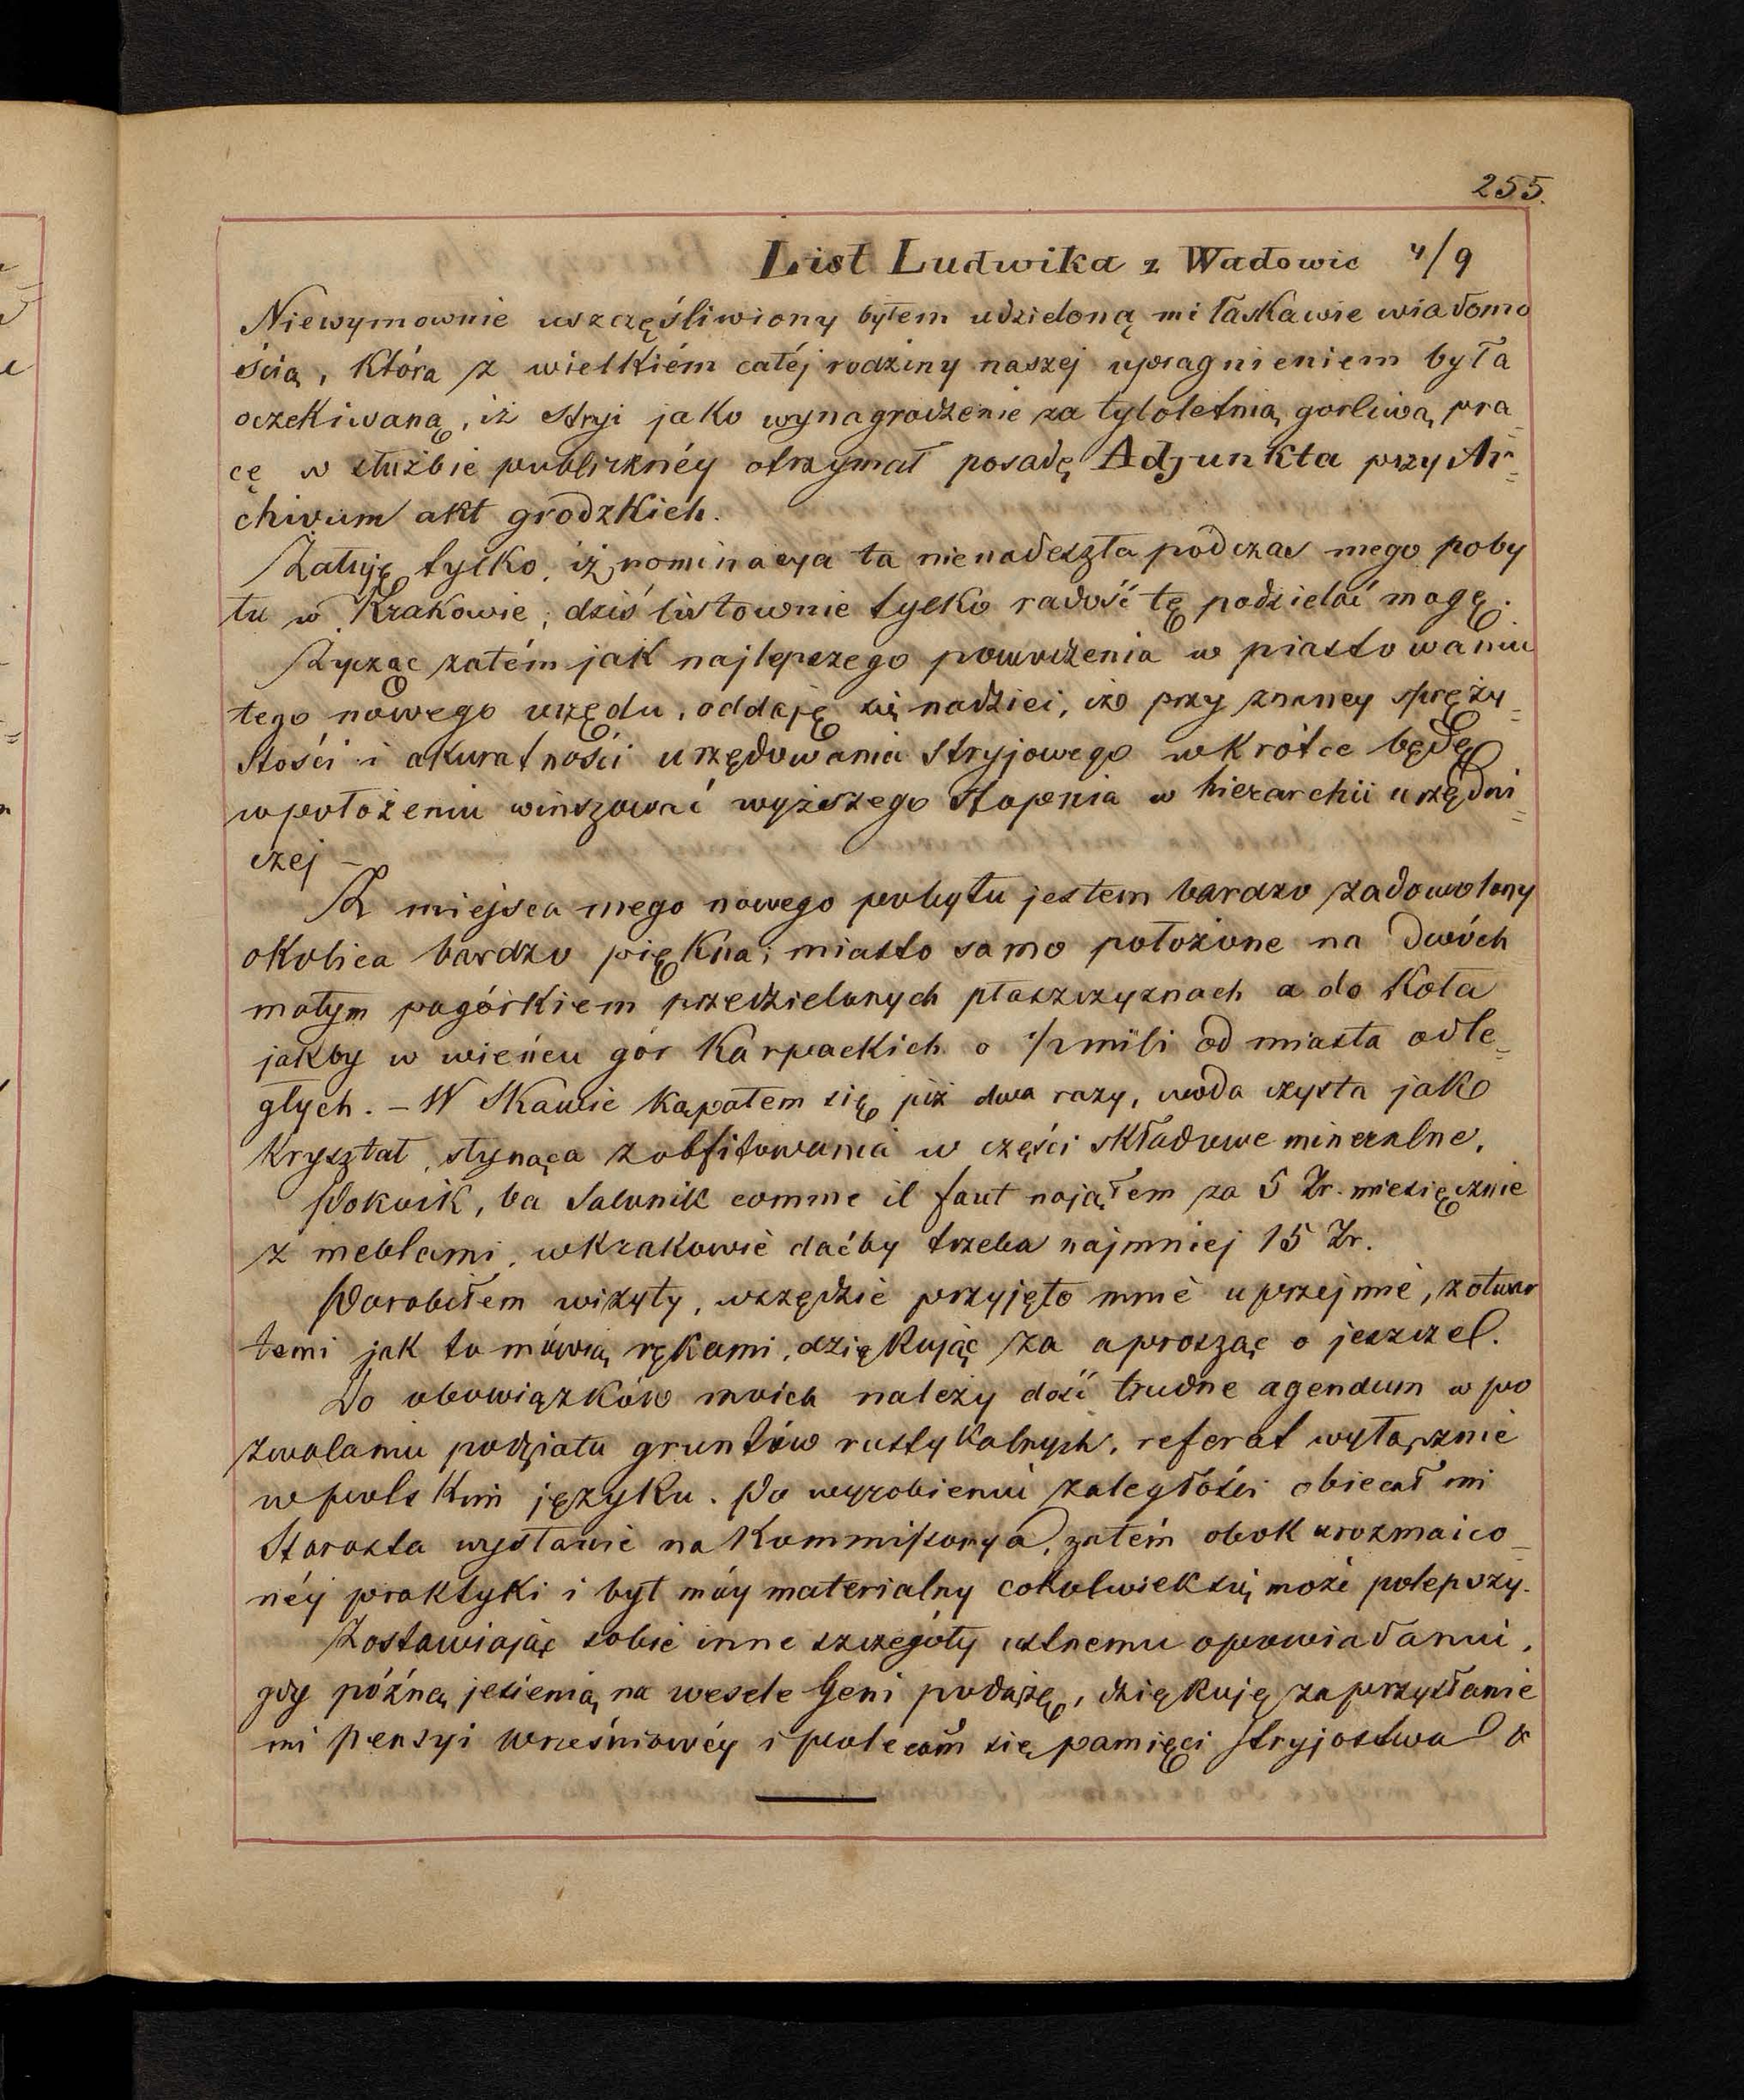 255.
List Ludwika z Wadowic 4/9
Niewymownie uszczęśliwiony byłem udzieloną mi łaskawie wiadomo
ścią, która z wielkiém całéj rodziny naszej upragnieniem była
oczekiwaną, iż Stryi jako wynagrodzenie za tyloletnią gorliwą pra
cę w służbie publicznéy otrzymał posadę Adjunkta przy Ar=
chivum akt grodzkich.
Żałuję tylko, iż nominacya ta nienadeszła podczas mego poby
tu w Krakowie, dziś listownie tylko radość tę podzielać mogę.
Życząc zatém jak najlepszego powodzenia w piastowaniu
tego nowego urzędu, oddaję się nadziei, iż przy znaney spręży=
stości i akuratności urzędowania Stryjowego wkrótce będę
wpołożeniu winszować wyższego stopnia w hierarchii urzędni=
czej –
Z miejsca mego nowego pobytu jestem bardzo zadowolony
okolica bardzo piękna; miasto samo położone na dwóch
małym pagórkiem przedzielonych płaszczyznach a do koła
jakby w wieńcu gór Karpackich o 1/2 mili od miasta odle=
głych. – W Skawie kąpałem się już dwa razy, woda czysta jako
kryształ, słynąca zobfitowania w części składowe mineralne.
Pokoik, ba Salonik comme il faut nająłem za 5 Zr. miesięcznie
z meblami, wKrakowie daćby trzeba najmniej 15 Zr.
Porobiłem wizyty, wszędzie przyjęto mnie uprzejmie, zotwar
temi jak to mówią rękami, dziękując za a prosząc o jeszcze.
Do obowiązków moich należy dość trudne agendum w po
zwalaniu podziału gruntów rustykalnych, referat wyłącznie
wpolskim języku. Po wyrobieniu zaległości obiecał mi
Starosta wysłanie na Kommissorya, zatém obok urozmaico=
néj praktyki i byt móy materialny cokolwiek się może polepszy.
Zostawiając sobie inne szczegóły ustnemu opowiadaniu,
gdy późną jesienią na wesele Geni podążę, dziękuję za przysłanie
mi pensyi wrześniowéy i polecam się pamięci Stryjostwa &